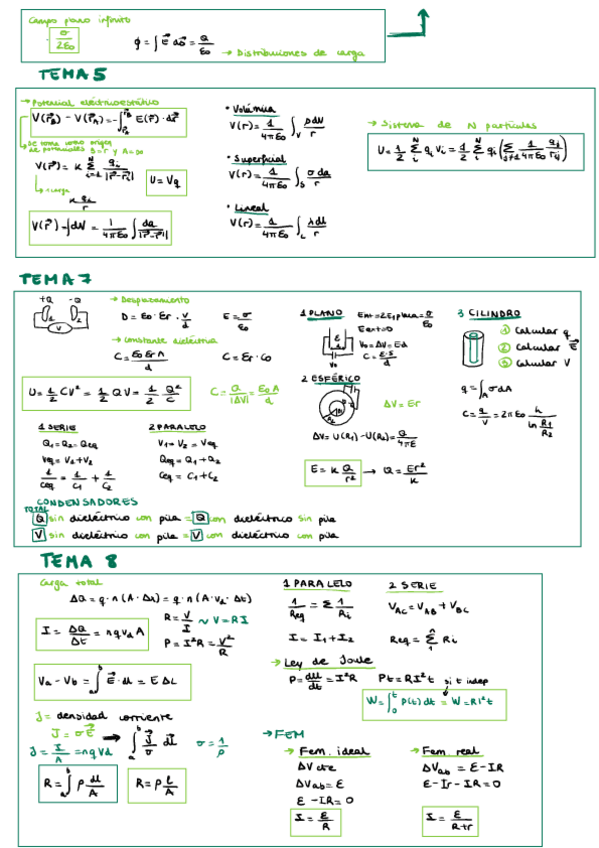 Campo plano infinito
σ/2ε₀
ϕ = ∫ E⃗ ds⃗ = Q/ε₀
→ Distribuciones de carga
TEMA 5
→ Potencial electroestático
V(r⃗_B) - V(r⃗_A) = -∫ E(r⃗) · dr⃗
Se toma como origen
de potenciales B=r y A=∞
V(r⃗) = K Σ_{i=1}^{N} q_i/|r⃗-r⃗_i|
→ 1 carga
K q_i/r
U = Vq
V(r⃗) = ∫dV = 1/4πε₀ ∫ dq/|r⃗-r⃗'|
• Volúmica
V(r) = 1/4πε₀ ∫_V ρdV/r
• Superficial
V(r⃗) = 1/4πε₀ ∫_S σda/r
• Lineal
V(r⃗) = 1/4πε₀ ∫_L λdl/r
→ Sistema de N partículas
U = 1/2 Σ_i^N q_i V_i = 1/2 Σ_i^N q_i (Σ_{j≠i} 1/4πε₀ q_j/r_ij)
TEMA 7
+Q -Q
1 2
V
→ Desplazamiento
D = ε₀ · εr · V/d
E = σ/ε₀
→ constante dieléctrica
C = ε₀ εr A/d
C = εr · C₀
U = 1/2 CV² = 1/2 QV = 1/2 Q²/C
C = Q/|ΔV| = ε₀A/d
1 SERIE
Q₁ = Q₂ = Qeq
Veq = V₁ + V₂
1/Ceq = 1/C₁ + 1/C₂
2 PARALELO
V₁ = V₂ = Veq
Qeq = Q₁ + Q₂
Ceq = C₁ + C₂
1 PLANO
Eint = 2E₁placa = σ/ε₀
Eext = 0
V₀ = ΔV = Ed
C = ε·S/d
V₀
2 ESFÉRICO
ΔV = Er
ΔV = U(R₁) - U(R₂) = Q/4πε
E = K Q/r² → Q = Er²/K
3 CILINDRO
① Calcular q
② Calcular E⃗
③ Calcular V
q = ∫_A σdA
C = q/V = 2πε₀ h/ln R₁/R₂
CONDENSADORES
TOTAL
Q sin dieléctrico con pila = Q con dieléctrico sin pila
V sin dieléctrico con pila = V con dieléctrico con pila
TEMA 8
Carga total
ΔQ = q · n (A · Δx) = q · n (A · v_d · Δt)
I = ΔQ/Δt = n q v_d A
R = V/I ∼ V = RI
P = I²R = V²/R
Va - Vb = ∫_a^b E⃗ · dl = E ΔL
J = densidad corriente
J⃗ = σE⃗ → ∫_a^b J⃗/σ dl⃗
σ = 1/ρ
J = I/A = nqVd
R = ∫_a^b ρ dl/A
R = ρ l/A
1 PARALELO
1/Req = Σ 1/Ri
I = I₁ + I₂
2 SERIE
V_AC = V_AB + V_BC
Req = Σ^n Ri
→ Ley de Joule
P = dU/dt = I²R
Pt = RI²t si t indep
W = ∫_0^t P(t) dt = W = RI²t
→ FEM
→ Fem. ideal
ΔV cte
ΔVab = ε
ε - IR = 0
I = ε/R
→ Fem. real
ΔVab = ε - IR
ε - Ir - IR = 0
I = ε/R+r